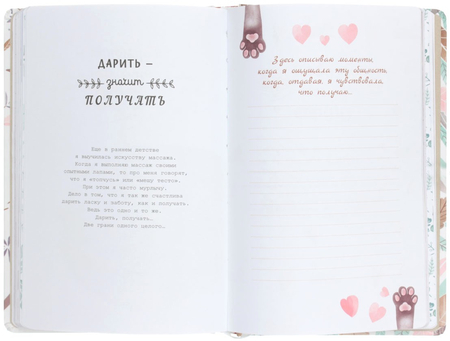 ДАРИТЬ —
значит
ПОЛУЧАТЬ
Еще в раннем детстве
я научилась искусству массажа.
Когда я выполняю массаж своими
лапами, то про меня говорят,
что я «топчусь» или «мешу тесто».
При этом я часто мурлыкаю.
Дело в том, что я так же счастлива
дарить ласку и заботу, как и получать.
Ведь это одно и то же.
Дарить, получать.
Две грани одного целого.
Здесь описываю моменты,
когда я ощущала эту общность,
когда, отдавая, я чувствовала,
что получаю...